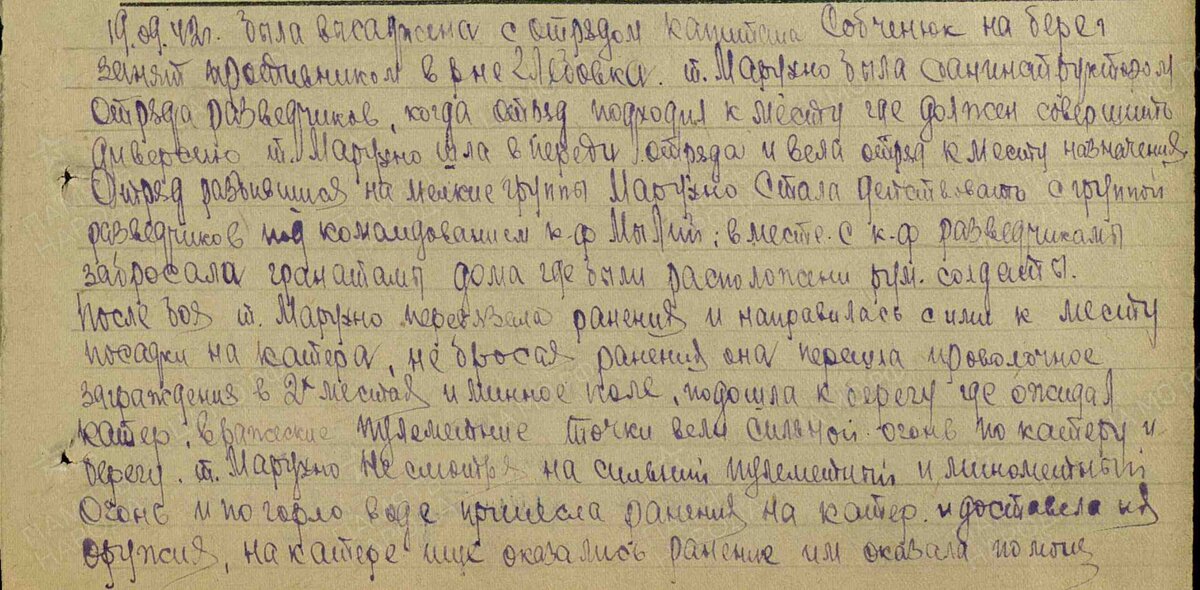 19.09.42г. была высаджена с отрядом капитана Собченюк на берег
занят противником в р не Глебовка. т. Марухно была санинструктором
Отряда разведчиков, когда отряд подходил к месту где должен совершить
диверсию т. Марухно шла в переди отряда и вела отряд к месту назначения
Отряд разбившися на мелкие группы Марухно Стала действовать с группой
разведчиков под командованием к-ф Мылий; вместе с к-ф разведчикамы
забросала гранатамы дома где были расположени рум. солдаты.
После боя т. Марухно перевязала ранения и направилась с ими к месту
посадки на катера, не бросая ранения она перешла проволочное
заграждения в 2х местах и минное поле, подошла к берегу где ожидал
катер, вражеские пулеметние точки вели сильной огонь по катеру и
берегу. т. Марухно Не смотря на сильний пулеметний и минометный
Огонь и по горло воде принесла ранения на катер и доставела их
оружия, на катере ище оказались ранение им оказала помощ